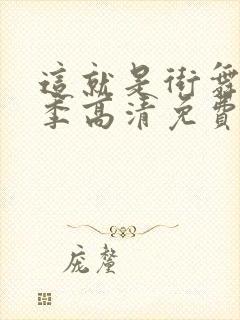 這就是街舞
季高清免費
庞鳌